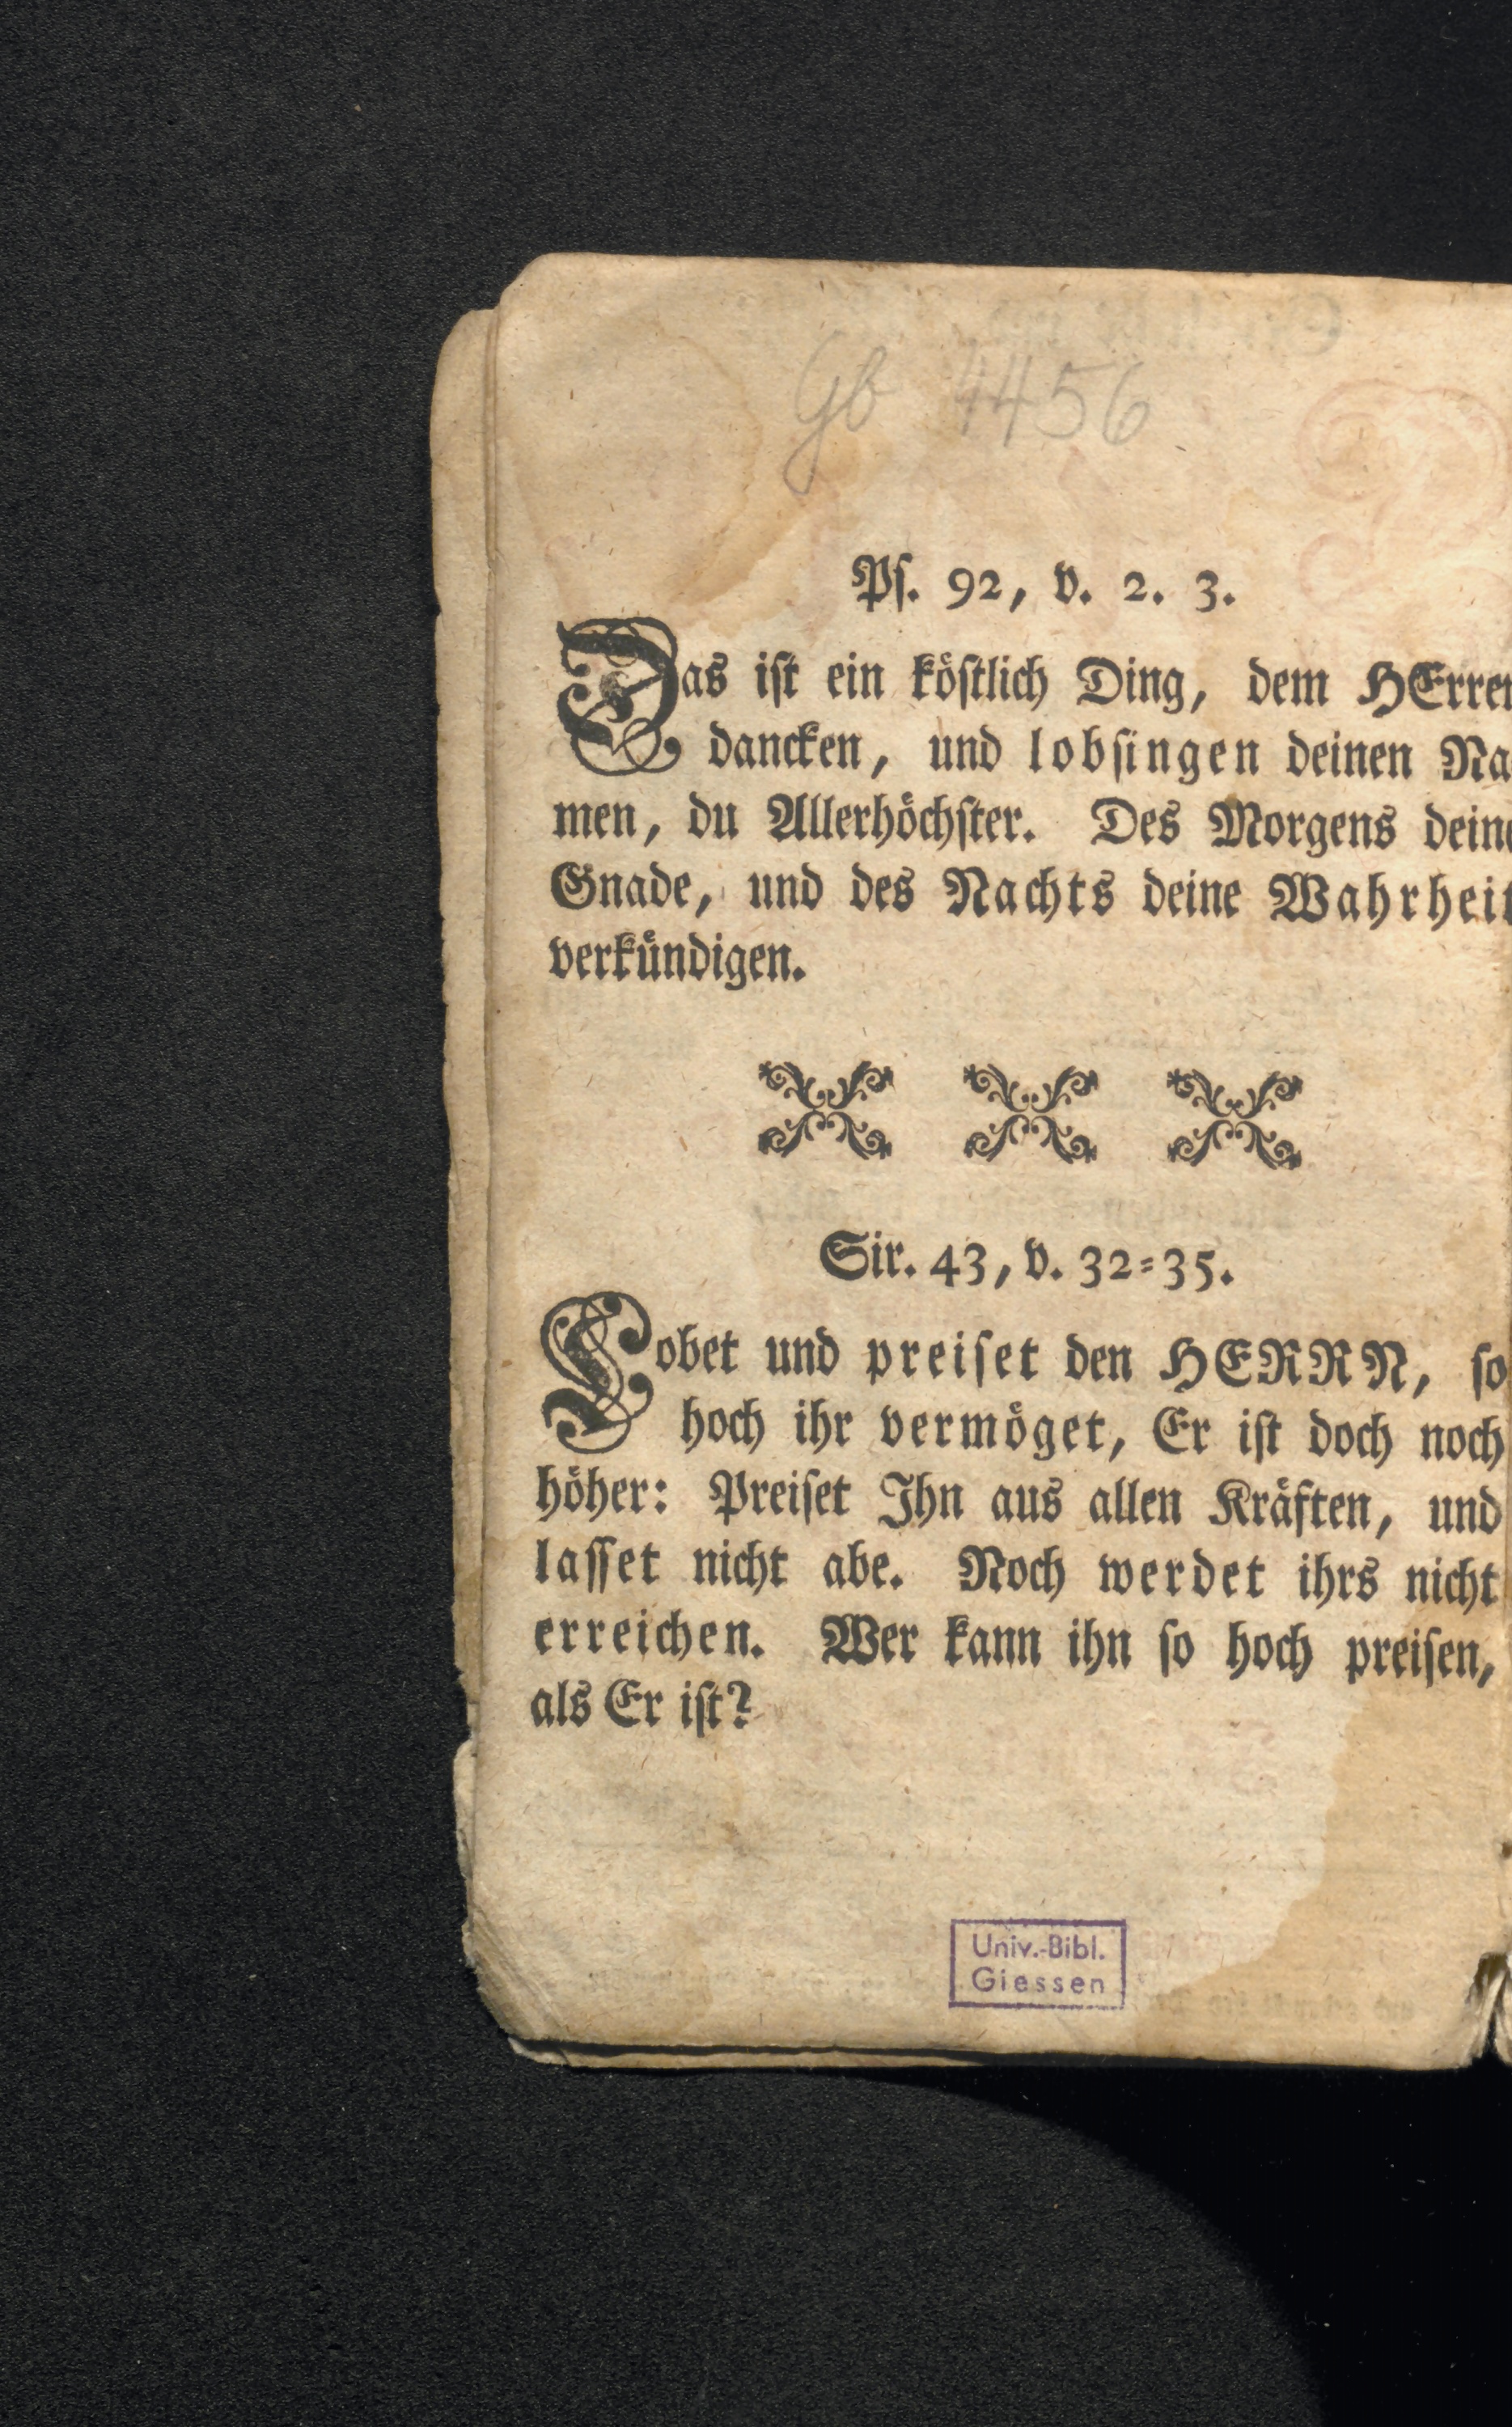 Gb 4456
Pſ. 92, v. 2. 3.
Das iſt ein köſtlich Ding, dem HErren
dancken, und lobſingen deinen Na
men, du Allerhöchſter. Des Morgens deine
Gnade, und des Nachts deine Wahrheit
verkündigen.
Sir. 43, v. 32-35.
Lobet und preiſet den HERRN, ſo
hoch ihr vermöget, Er iſt doch noch
höher: Preiſet Ihn aus allen Kräften, und
laſſet nicht abe. Noch werdet ihrs nicht
erreichen. Wer kann ihn ſo hoch preiſen,
als Er iſt?
Univ.-Bibl.
Giessen